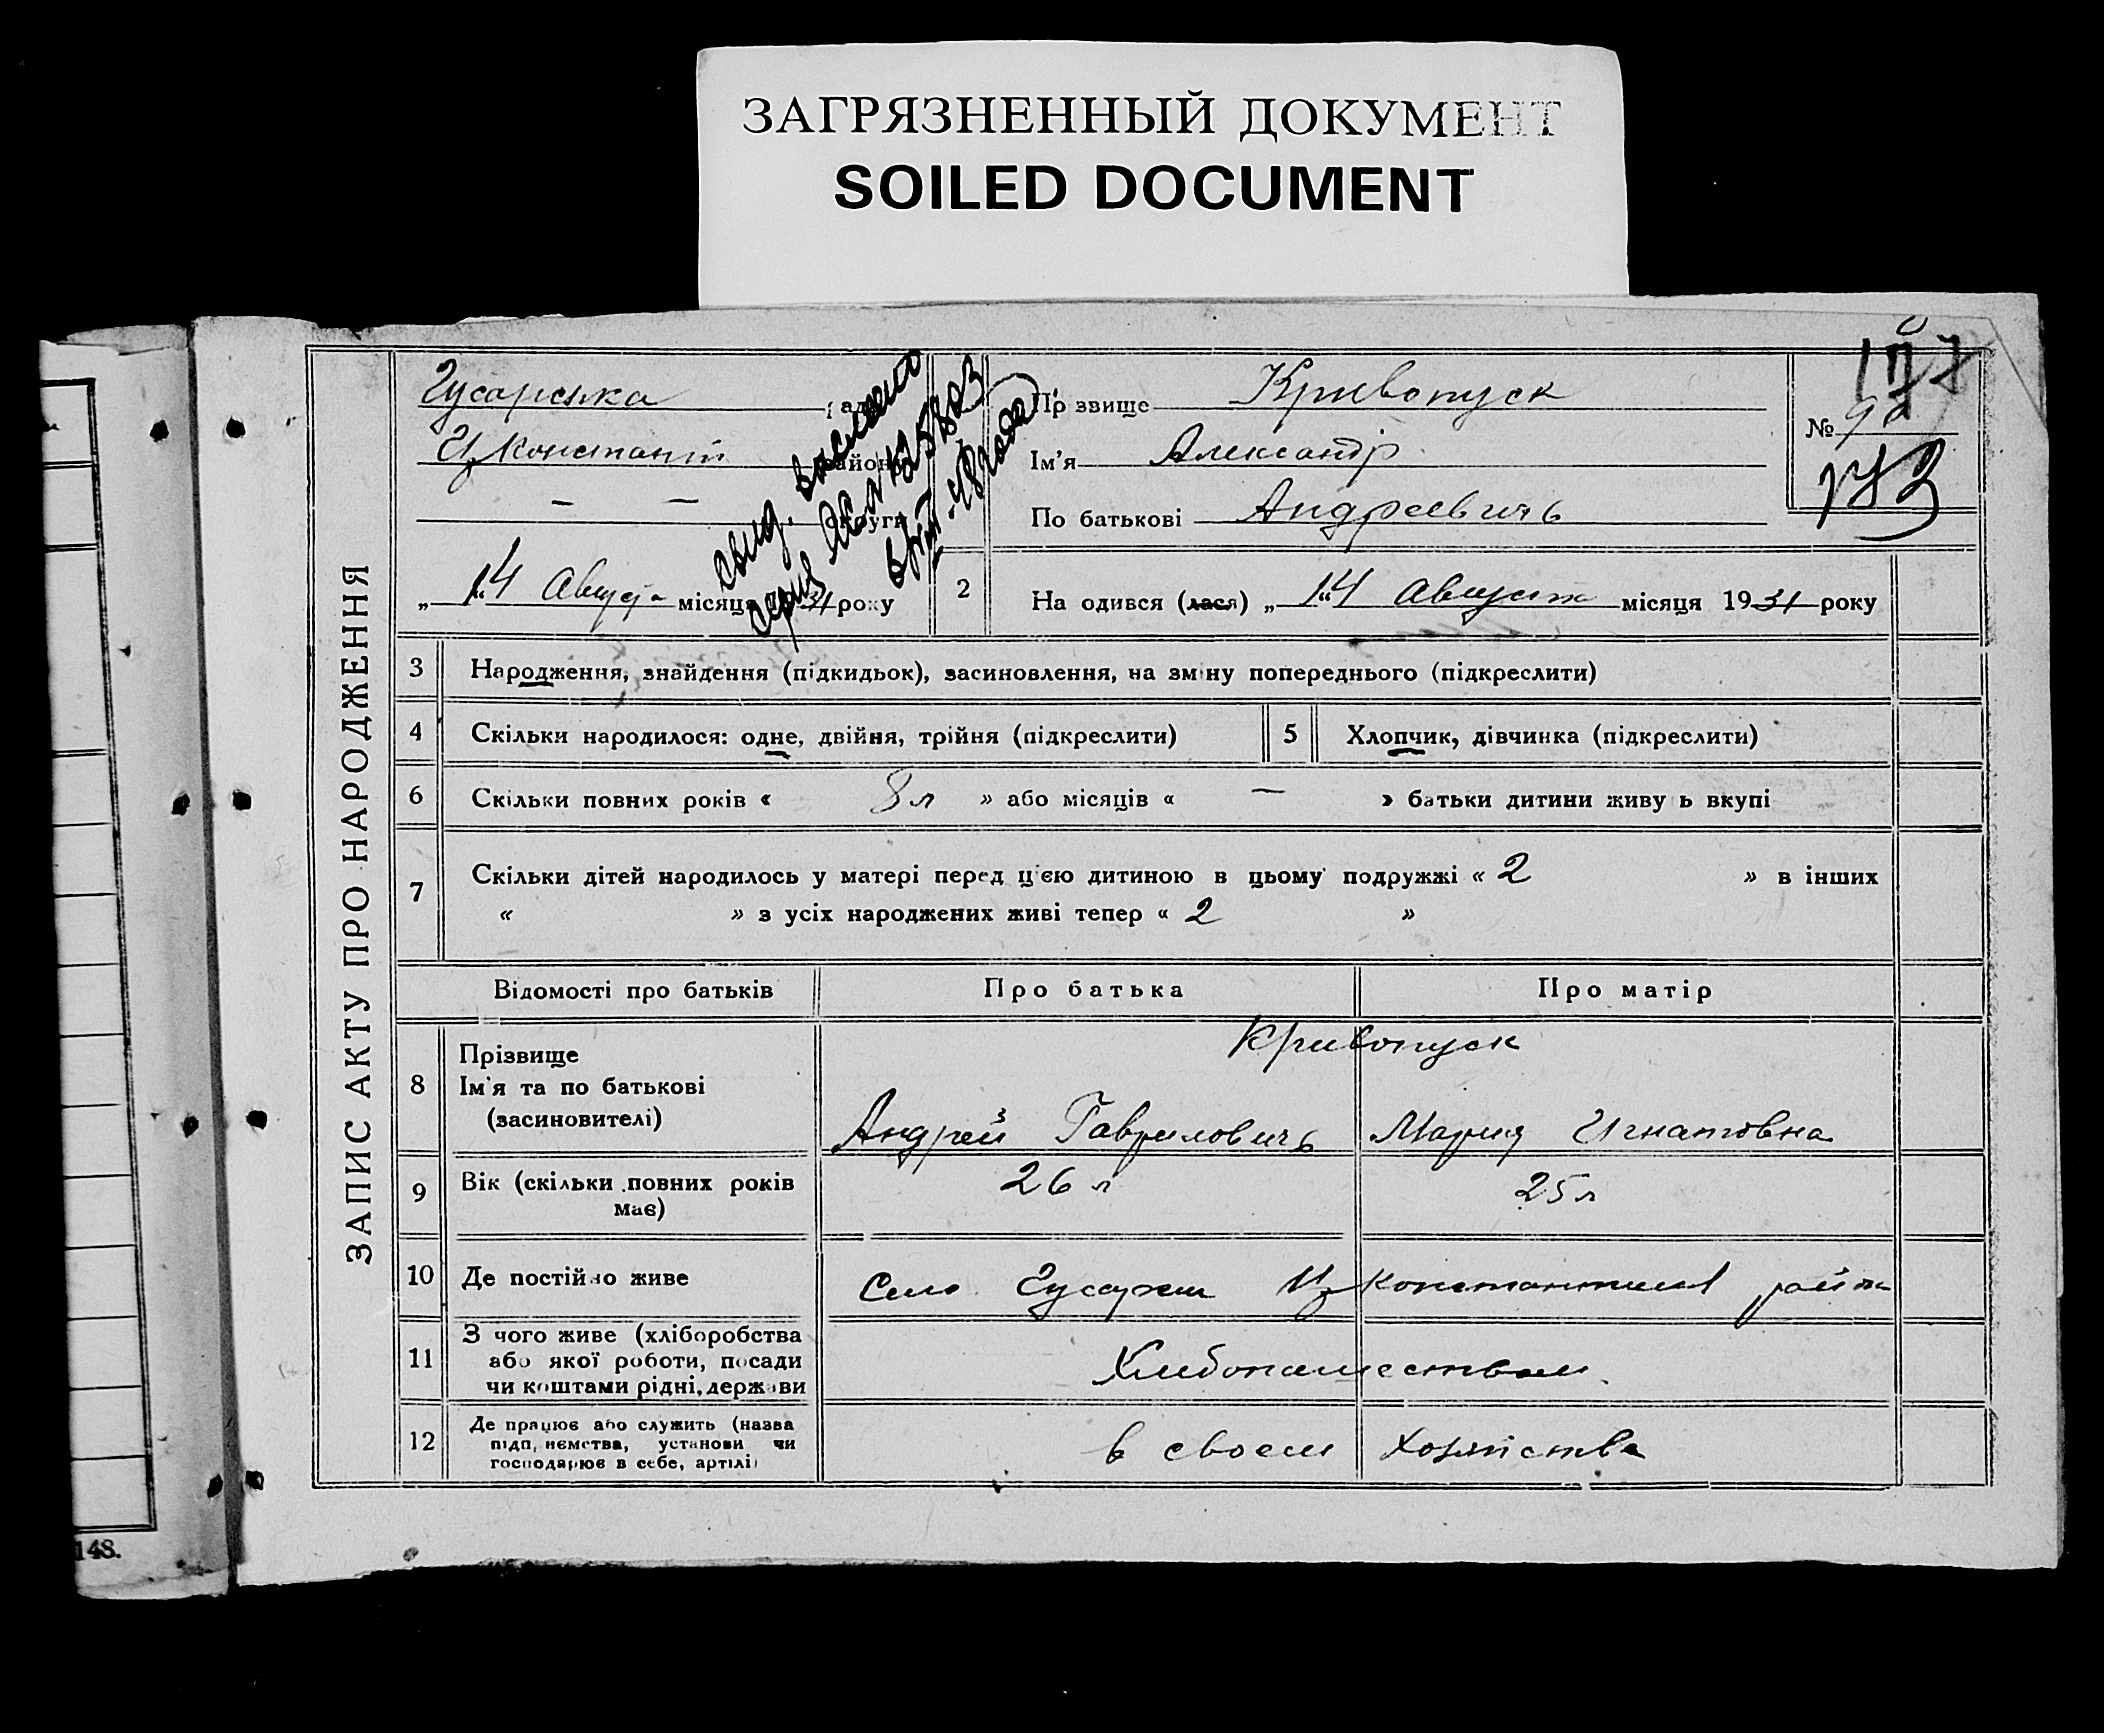 ЗАГРЯЗНЕННЫЙ ДОКУМЕНТ
SOILED DOCUMENT
ЗАПИС АКТУ ПРО НАРОДЖЕННЯ
Гусарська рада
Ц Констант району
— — округи
„ 14 “ Августа місяця 1931 року
свид. выслано
серия
48 года
Прізвище Кривопуск
Ім’я Александр
По батькові Андреевичъ
№ 92
173
2 Народився (лася) „ 14 “ Августа місяця 1931 року
3 Народження, знайдення (підкидьок), засиновлення, на зміну попереднього (підкреслити)
4 Скільки народилося: одне, двійня, трійня (підкреслити)
5 Хлопчик, дівчинка (підкреслити)
6 Скільки повних років « 8 л » або місяців « — » батьки дитини живуть вкупі
7 Скільки дітей народилось у матері перед цією дитиною в цьому подружжі « 2 » в інших
« » з усіх народжених живі тепер « 2 »
Відомості про батьків Про батька Про матір
8 Прізвище
Ім’я та по батькові
(засиновителі)
Кривопуск
Андрей Гавриловичъ Мария Игнатовна
9 Вік (скільки повних років
має)
26 л 25 л
10 Де постійно живе
Село Гусарки Ц Константинов район
11 З чого живе (хліборобства
або якої роботи, посади
чи коштами рідні, держави
Хлебопашеством.
12 Де працює або служить (назва
підприємства, установи чи
господарює в себе, артілі)
в своем хозяйстве
148.